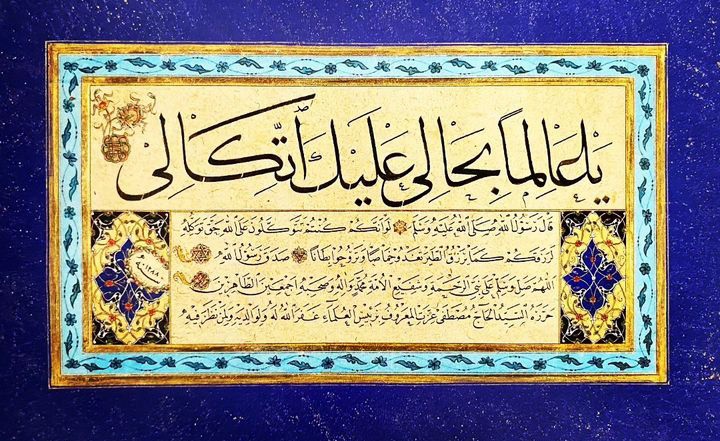 يَا عَالِمًا بِحَالِي عَلَيْكَ اتِّكَالِي
قَالَ رَسُولُ اللهِ صَلَّى اللهُ عَلَيْهِ وَسَلَّمَ لَوْ أَنَّكُمْ كُنْتُمْ تَتَوَكَّلُونَ عَلَى اللهِ حَقَّ تَوَكُّلِهِ
لَرَزَقَكُمْ كَمَا يَرْزُقُ الطَّيْرَ تَغْدُو خِمَاصًا وَتَرُوحُ بِطَانًا صَدَقَ رَسُولُ اللهِ
اللهم صل وسلم على نبي الرحمة وشفيع الأمة محمد وآله وصحبه أجمعين الطاهرين
حرره السيد الحاج مصطفى عزت المعروف برئيس العلماء غفر الله له ولوالديه ولمن نظر فيه
١٢٨٨